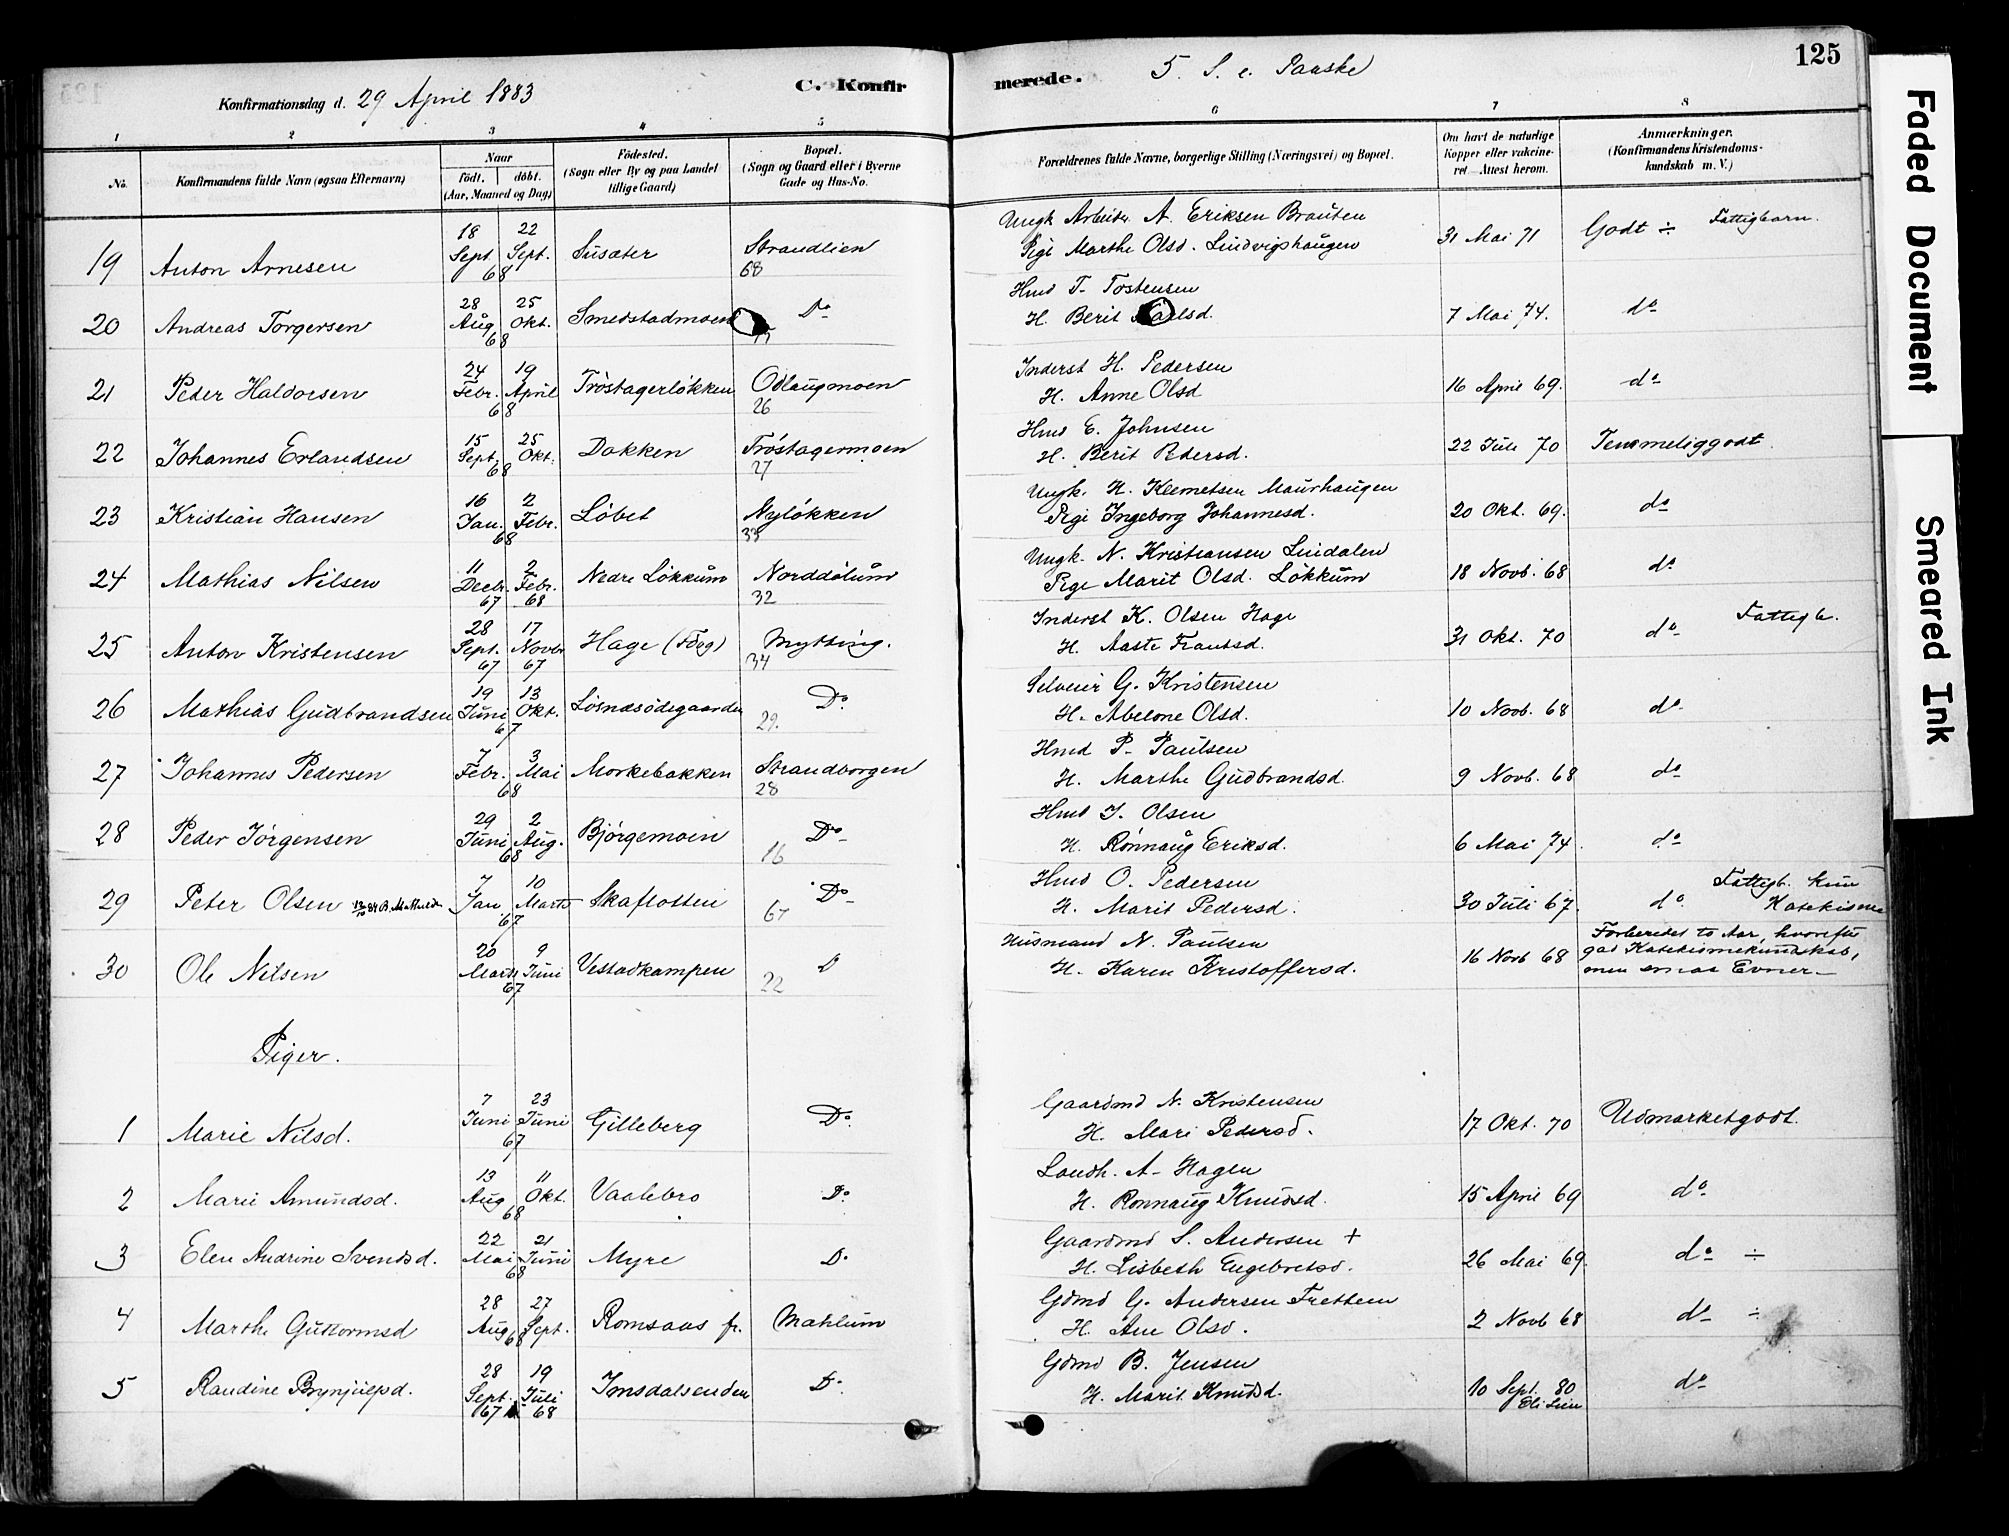 125
Konfirmationsdag d. 29 April 1883 C. Konfir
merede. 5. S. e. Paaske
1 2 3 4 5 6 7 8
No. Konfirmandens fulde Navn (ogsaa Efternavn) Naar født. døbt. (Aar, Maaned og Dag) Fødested. (Sogn eller By og paa Landet tillige Gaard) Bopæl. (Sogn og Gaard eller i Byerne Gade og Hus-No. Forældrenes fulde Navne, borgerlige Stilling (Næringsvei) og Bopæl. Om havt de naturlige Kopper eller vakcineret. Attest herom. Anmærkninger. (Konfirmandens Kristendomskundskab m. V.)
19 Anton Arnesen 18 Sept. 22 Sept. 68 Susæter Strandlien 68 Ungk. Arbeider A. Eriksen Brauten Pige Marthe Olsd. Lindvigshaugen 31 Mai 71 Godt ÷ Fattigbarn.
20 Andreas Torgersen 28 Aug 25 Okt. 68 Smedstadmoen Do Hmd T. Tostensen H. Berit 7 Mai 74. do
21 Peder Haldorsen 24 Febr. 19 April 68 Trøstagerløkken Odlaugmoen 26 Inderst H. Pedersen H. Anne Olsd 16 April 69. do
22 Johannes Erlandsen 15 Sept. 25 Okt. 68 Dokken Trøstagermoen 27 Hmd E. Johnsen H. Berit Pedersd. 22 Juli 70 Temmeliggodt.
23 Kristian Hansen 16 Jan. 2 Febr. 68 Løbet Nyløkken 33 Ungk. H. Klemetsen Maurhaugen Pige Ingeborg Johannesd. 20 Okt. 69. do
24 Mathias Nilsen 11 Decbr. 67 2 Febr. 68 Nedre Løkkum Norddølum 32 Ungk. N. Kristiansen Lindalen Pige Marit Olsd. Løkkum 18 Novb. 68 do
25 Anton Kristensen 28 Sept. 67 17 Novbr 67 Hage (Fåvg) Mytting. 34 Inderst K. Olsen Hage H. Aaste Frantsd. 31 Okt. 70 do Fattigb.
26 Mathias Gudbrandsen 19 Juni 13 Okt. 67 Løsnæsødegaarden Do 29. Selveier G. Kristensen H. Abelone Olsd. 10 Novb. 68 do
27 Johannes Pedersen 7 Febr. 3 Mai 68 Morkebakken Strandborgen 28 Hmd P. Paulsen H. Marthe Gudbrandsd. 9 Novb. 68 do
28 Peder Jørgensen 29 Juni 2 Aug. 68 Bjørgemoen Do 16 Hmd J. Olsen H. Rønnaug Eriksd. 6 Mai 74. do
29 Peter Olsen 7 Jan 10 Marts 67 Skaflotten Do 67 Hmd O. Pedersen H. Marit Pedersd. 30 Juli 67. do Fattigb. kun Katekisme
30 Ole Nilsen 20 Marts 9 Juni 67 Vestadkampen D 22 Husmand N. Paulsen H. Karen Kristoffersd. 16 Novb 68 Forberedet to Aar, hvorefter god Katekismekundskab, men smaa Evner.
Piger.
1 Marie Nilsd. 7 Juni 23 Juni 67 Gilleberg Do Gaardmd N. Kristensen H. Mari Pedersd. 17 Okt. 70 Udmærketgodt.
2 Marie Amundsd. 13 Aug 11 Okt. 68 Vaalebro Do Landh. A. Hagen H. Rønnaug Knudsd. 15 April 69 do
3 Elen Andrine Svendsd. 22 Mai 21 Juni 68 Myre Do Gaardmd S. Andersen + H. Lisbeth Engebretsd. 26 Mai 69. do ÷
4 Marthe Guttormsd 28 Aug 27 Sept. 68 Romsaas fr. Mæhlum Gdmd G. Andersen Frettem H. Ane Olsd. 2 Novb 68 do ÷
5 Randine Brynjulfsd. 28 Sept. 67 19 Juli 68 Imsdalsenden Do Gdmd B. Jensen H. Marit Knudsd. 10 Sept. 80 Oli Lien do
Faded Document
Smeared Ink